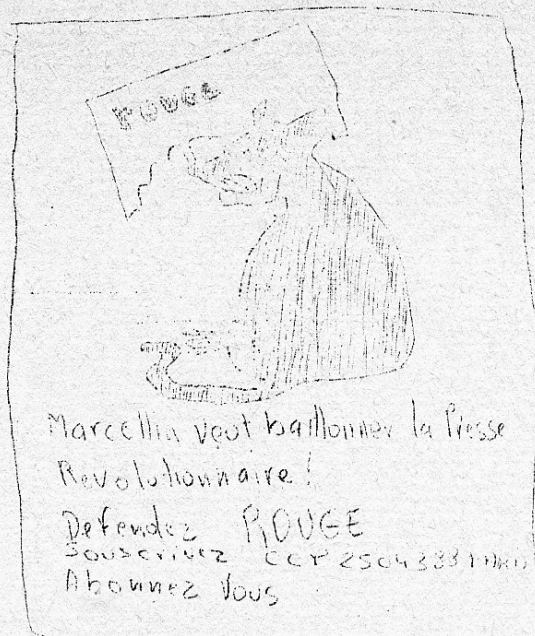 ROUGE
Marcellin veut baillonner la Presse
Revolutionnaire !
Defendez ROUGE
Souscrivez CCP
Abonnez Vous